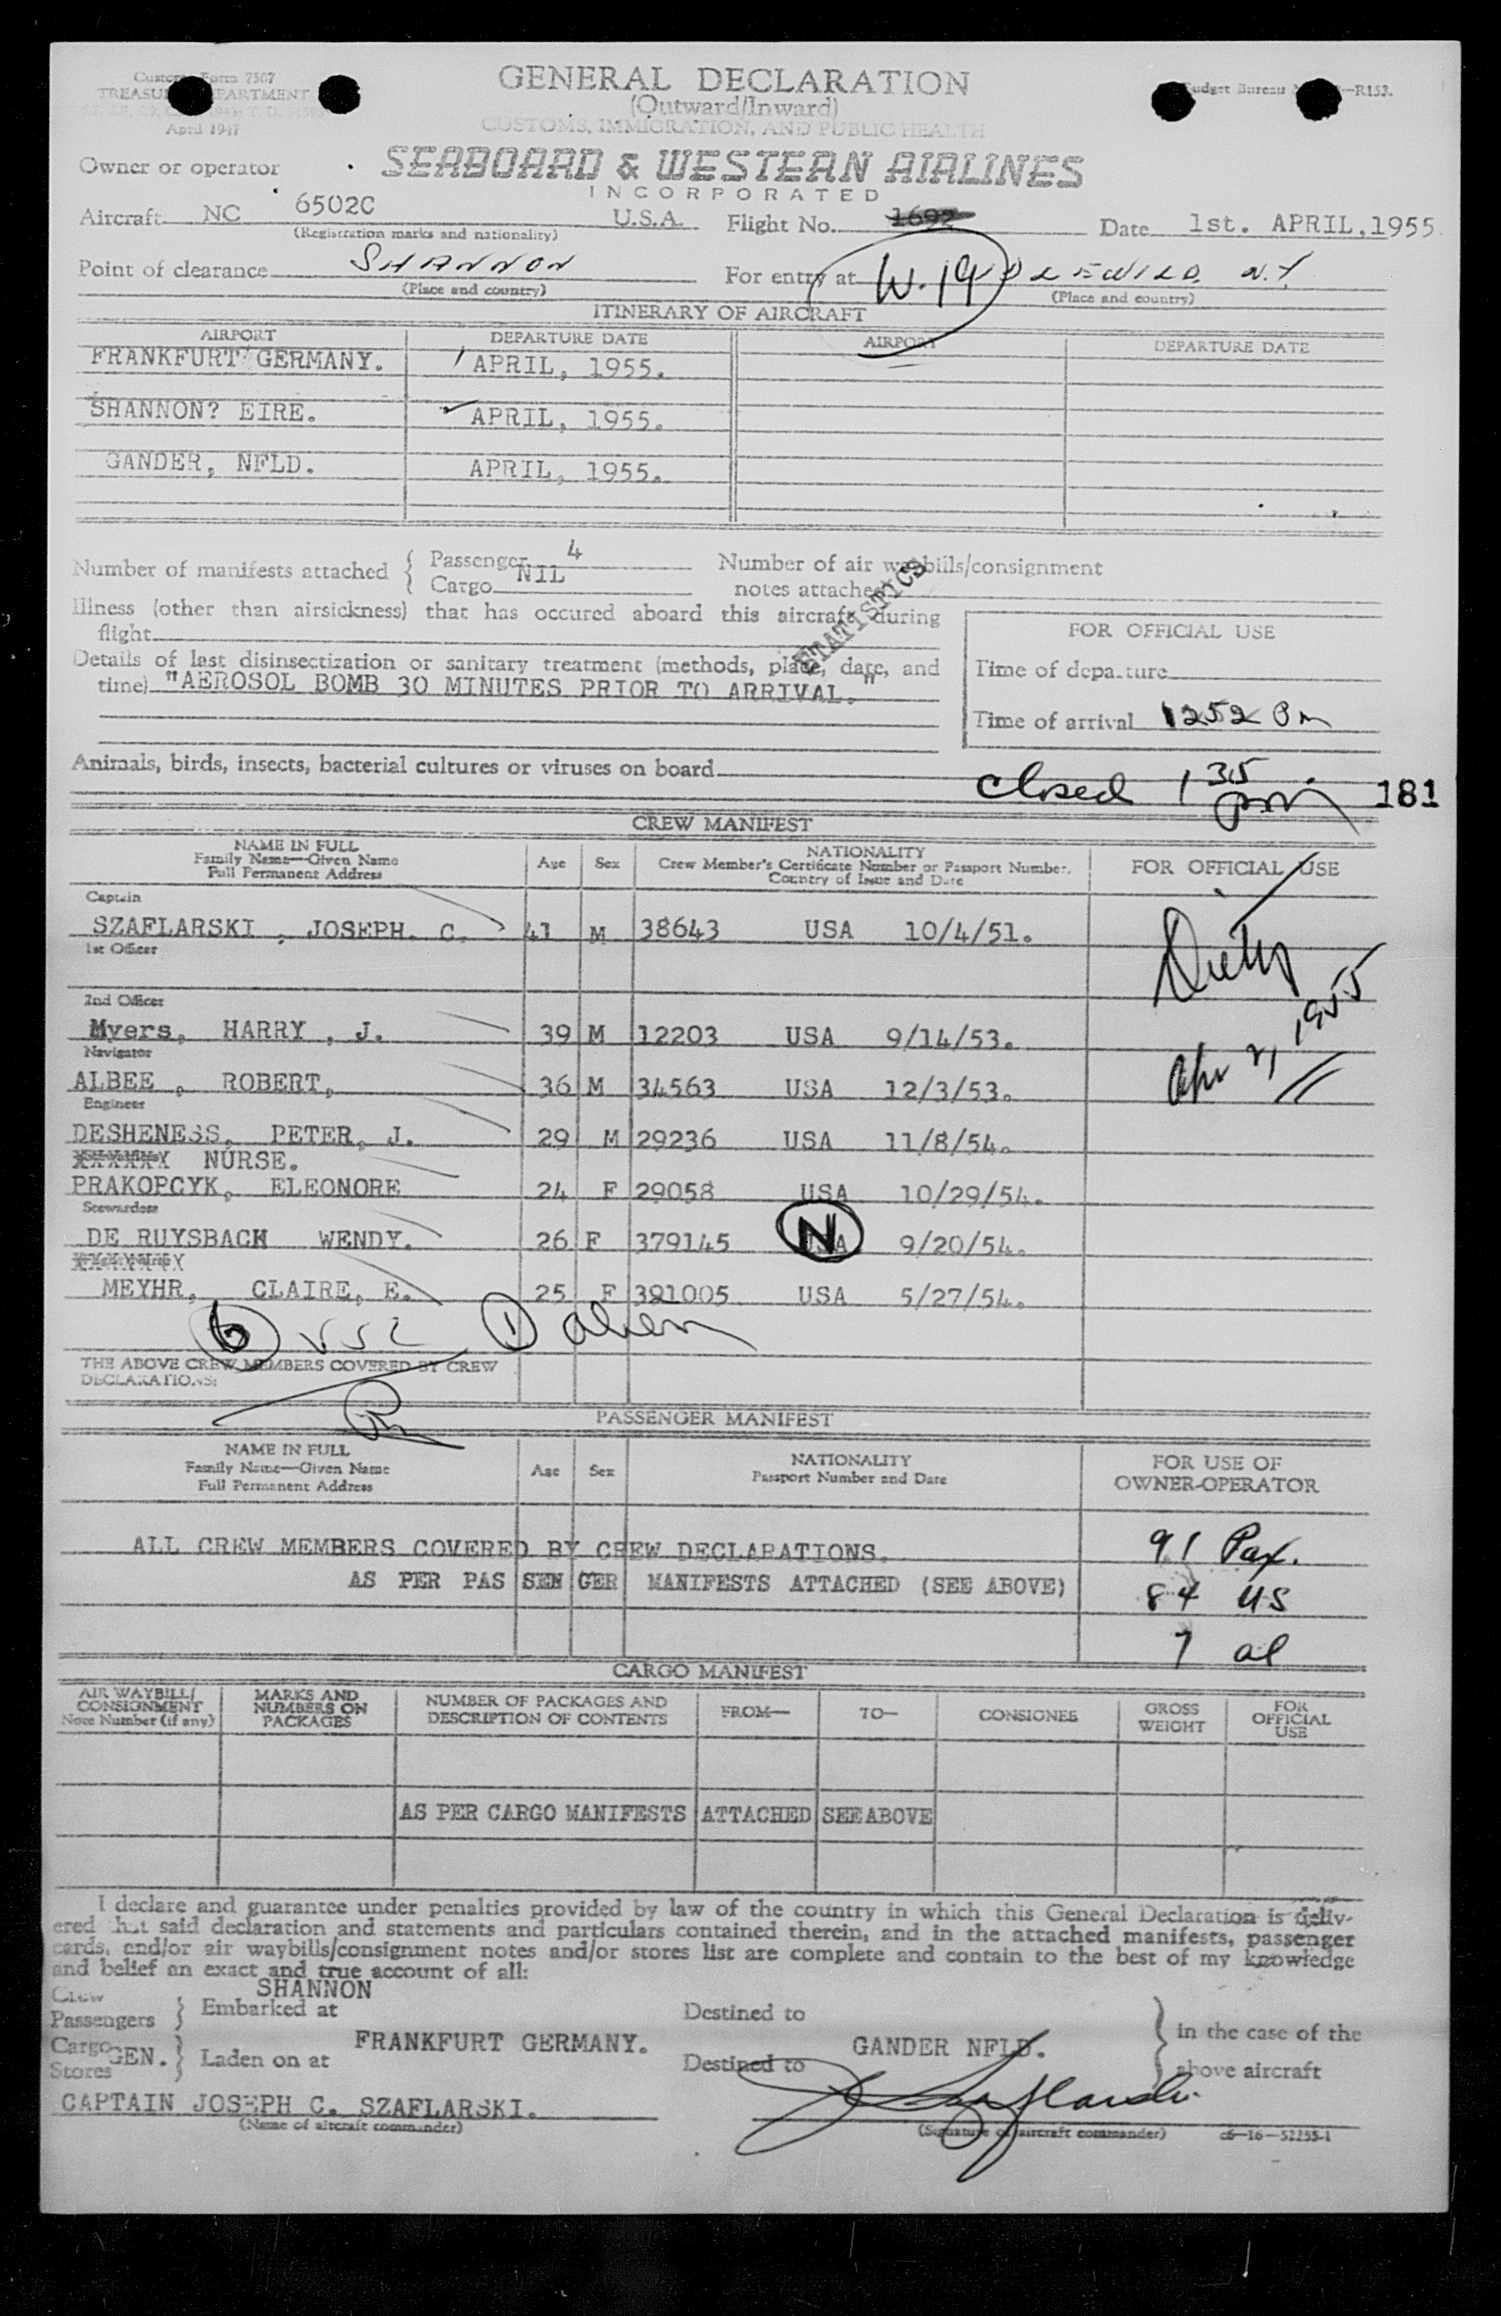 Customs Form 7507
TREASURY DEPARTMENT
April 1947
GENERAL DECLARATION
(Outward/Inward)
CUSTOMS, IMMIGRATION, AND PUBLIC HEALTH
Budget Bureau No. —R153.
Owner or operator SEABOARD & WESTERN AIRLINES
INCORPORATED
Aircraft NC 6502C U.S.A. Flight No. 1692 Date 1st. APRIL, 1955.
(Registration marks and nationality)
Point of clearance SHANNON For entry at W.19 IDLEWILD N.Y.
(Place and country) (Place and country)
ITINERARY OF AIRCRAFT
AIRPORT DEPARTURE DATE AIRPORT DEPARTURE DATE
FRANKFURT GERMANY. 1 APRIL, 1955.
SHANNON? EIRE. APRIL, 1955.
GANDER, NFLD. APRIL, 1955.
Number of manifests attached { Passenger 4 Number of air waybills/consignment
Cargo NIL notes attached
STATISTICS
Illness (other than airsickness) that has occured aboard this aircraft during
flight
FOR OFFICIAL USE
Details of last disinsectization or sanitary treatment (methods, place, date, and
time) "AEROSOL BOMB 30 MINUTES PRIOR TO ARRIVAL."
Time of departure
Time of arrival 1252 Pm
Animals, birds, insects, bacterial cultures or viruses on board
closed 1 35 pm 181
CREW MANIFEST
NAME IN FULL
Family Name—Given Name
Full Permanent Address
Age Sex
NATIONALITY
Crew Member's Certificate Number or Passport Number,
Country of Issue and Date
FOR OFFICIAL USE
Captain
SZAFLARSKI , JOSEPH. C. 41 M 38643 USA 10/4/51.
1st Officer
2nd Officer
Myers, HARRY , J. 39 M 12203 USA 9/14/53.
Navigator
ALBEE , ROBERT, 36 M 34563 USA 12/3/53.
Engineer
DESHENESS, PETER, J. 29 M 29236 USA 11/8/54.
XXXXXX NURSE.
PRAKOPCYK, ELEONORE 24 F 29058 USA 10/29/54.
Stewardess
DE RUYSBACH WENDY. 26 F 379145 N USA 9/20/54.
XXXXXXX
MEYHR, CLAIRE, E. 25 F 391005 USA 5/27/54.
6 USC 1 alien
THE ABOVE CREW MEMBERS COVERED BY CREW
DECLARATIONS:
PASSENGER MANIFEST
NAME IN FULL
Family Name—Given Name
Full Permanent Address
Age Sex
NATIONALITY
Passport Number and Date
FOR USE OF
OWNER-OPERATOR
ALL CREW MEMBERS COVERED BY CREW DECLARATIONS. 91 Pax.
AS PER PASSENGER MANIFESTS ATTACHED (SEE ABOVE) 84 US
7 al
CARGO MANIFEST
AIR WAYBILL/
CONSIGNMENT
Note Number (if any)
MARKS AND
NUMBERS ON
PACKAGES
NUMBER OF PACKAGES AND
DESCRIPTION OF CONTENTS
FROM— TO— CONSIGNEE
GROSS
WEIGHT
FOR
OFFICIAL
USE
AS PER CARGO MANIFESTS ATTACHED SEE ABOVE
I declare and guarantee under penalties provided by law of the country in which this General Declaration is deliv-
ered that said declaration and statements and particulars contained therein, and in the attached manifests, passenger
cards, and/or air waybills/consignment notes and/or stores list are complete and contain to the best of my knowledge
and belief an exact and true account of all:
Crew SHANNON
Passengers } Embarked at Destined to } in the case of the
FRANKFURT GERMANY. GANDER NFLD.
Cargo GEN. } Laden on at Destined to above aircraft
Stores
CAPTAIN JOSEPH C. SZAFLARSKI. J C Szaflarski
(Name of aircraft commander) (Signature of aircraft commander) c6—16—52255-1